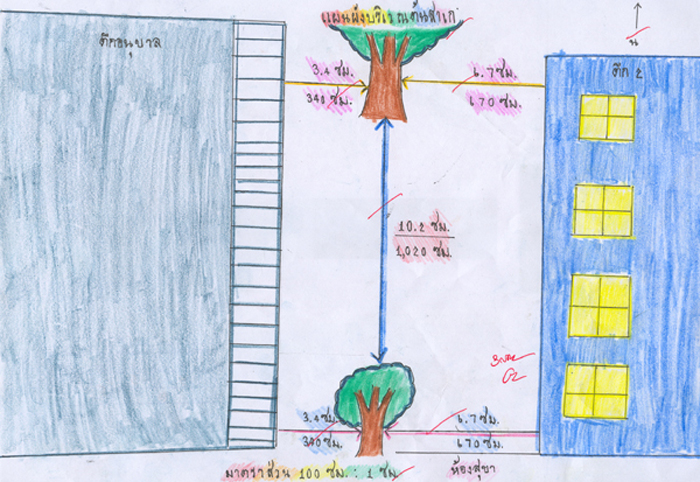 แผนผังบริเวณต้นสำเภา
น
ตึกอนุบาล
ตึก 2
3.4 ซม.
340 ซม.
6.7 ซม.
670 ซม.
10.2 ซม.
1,020 ซม.
3.4 ซม.
340 ซม.
6.7 ซม.
670 ซม.
ห้องสุขา
มาตราส่วน 100 ซม. : 1 ซม.